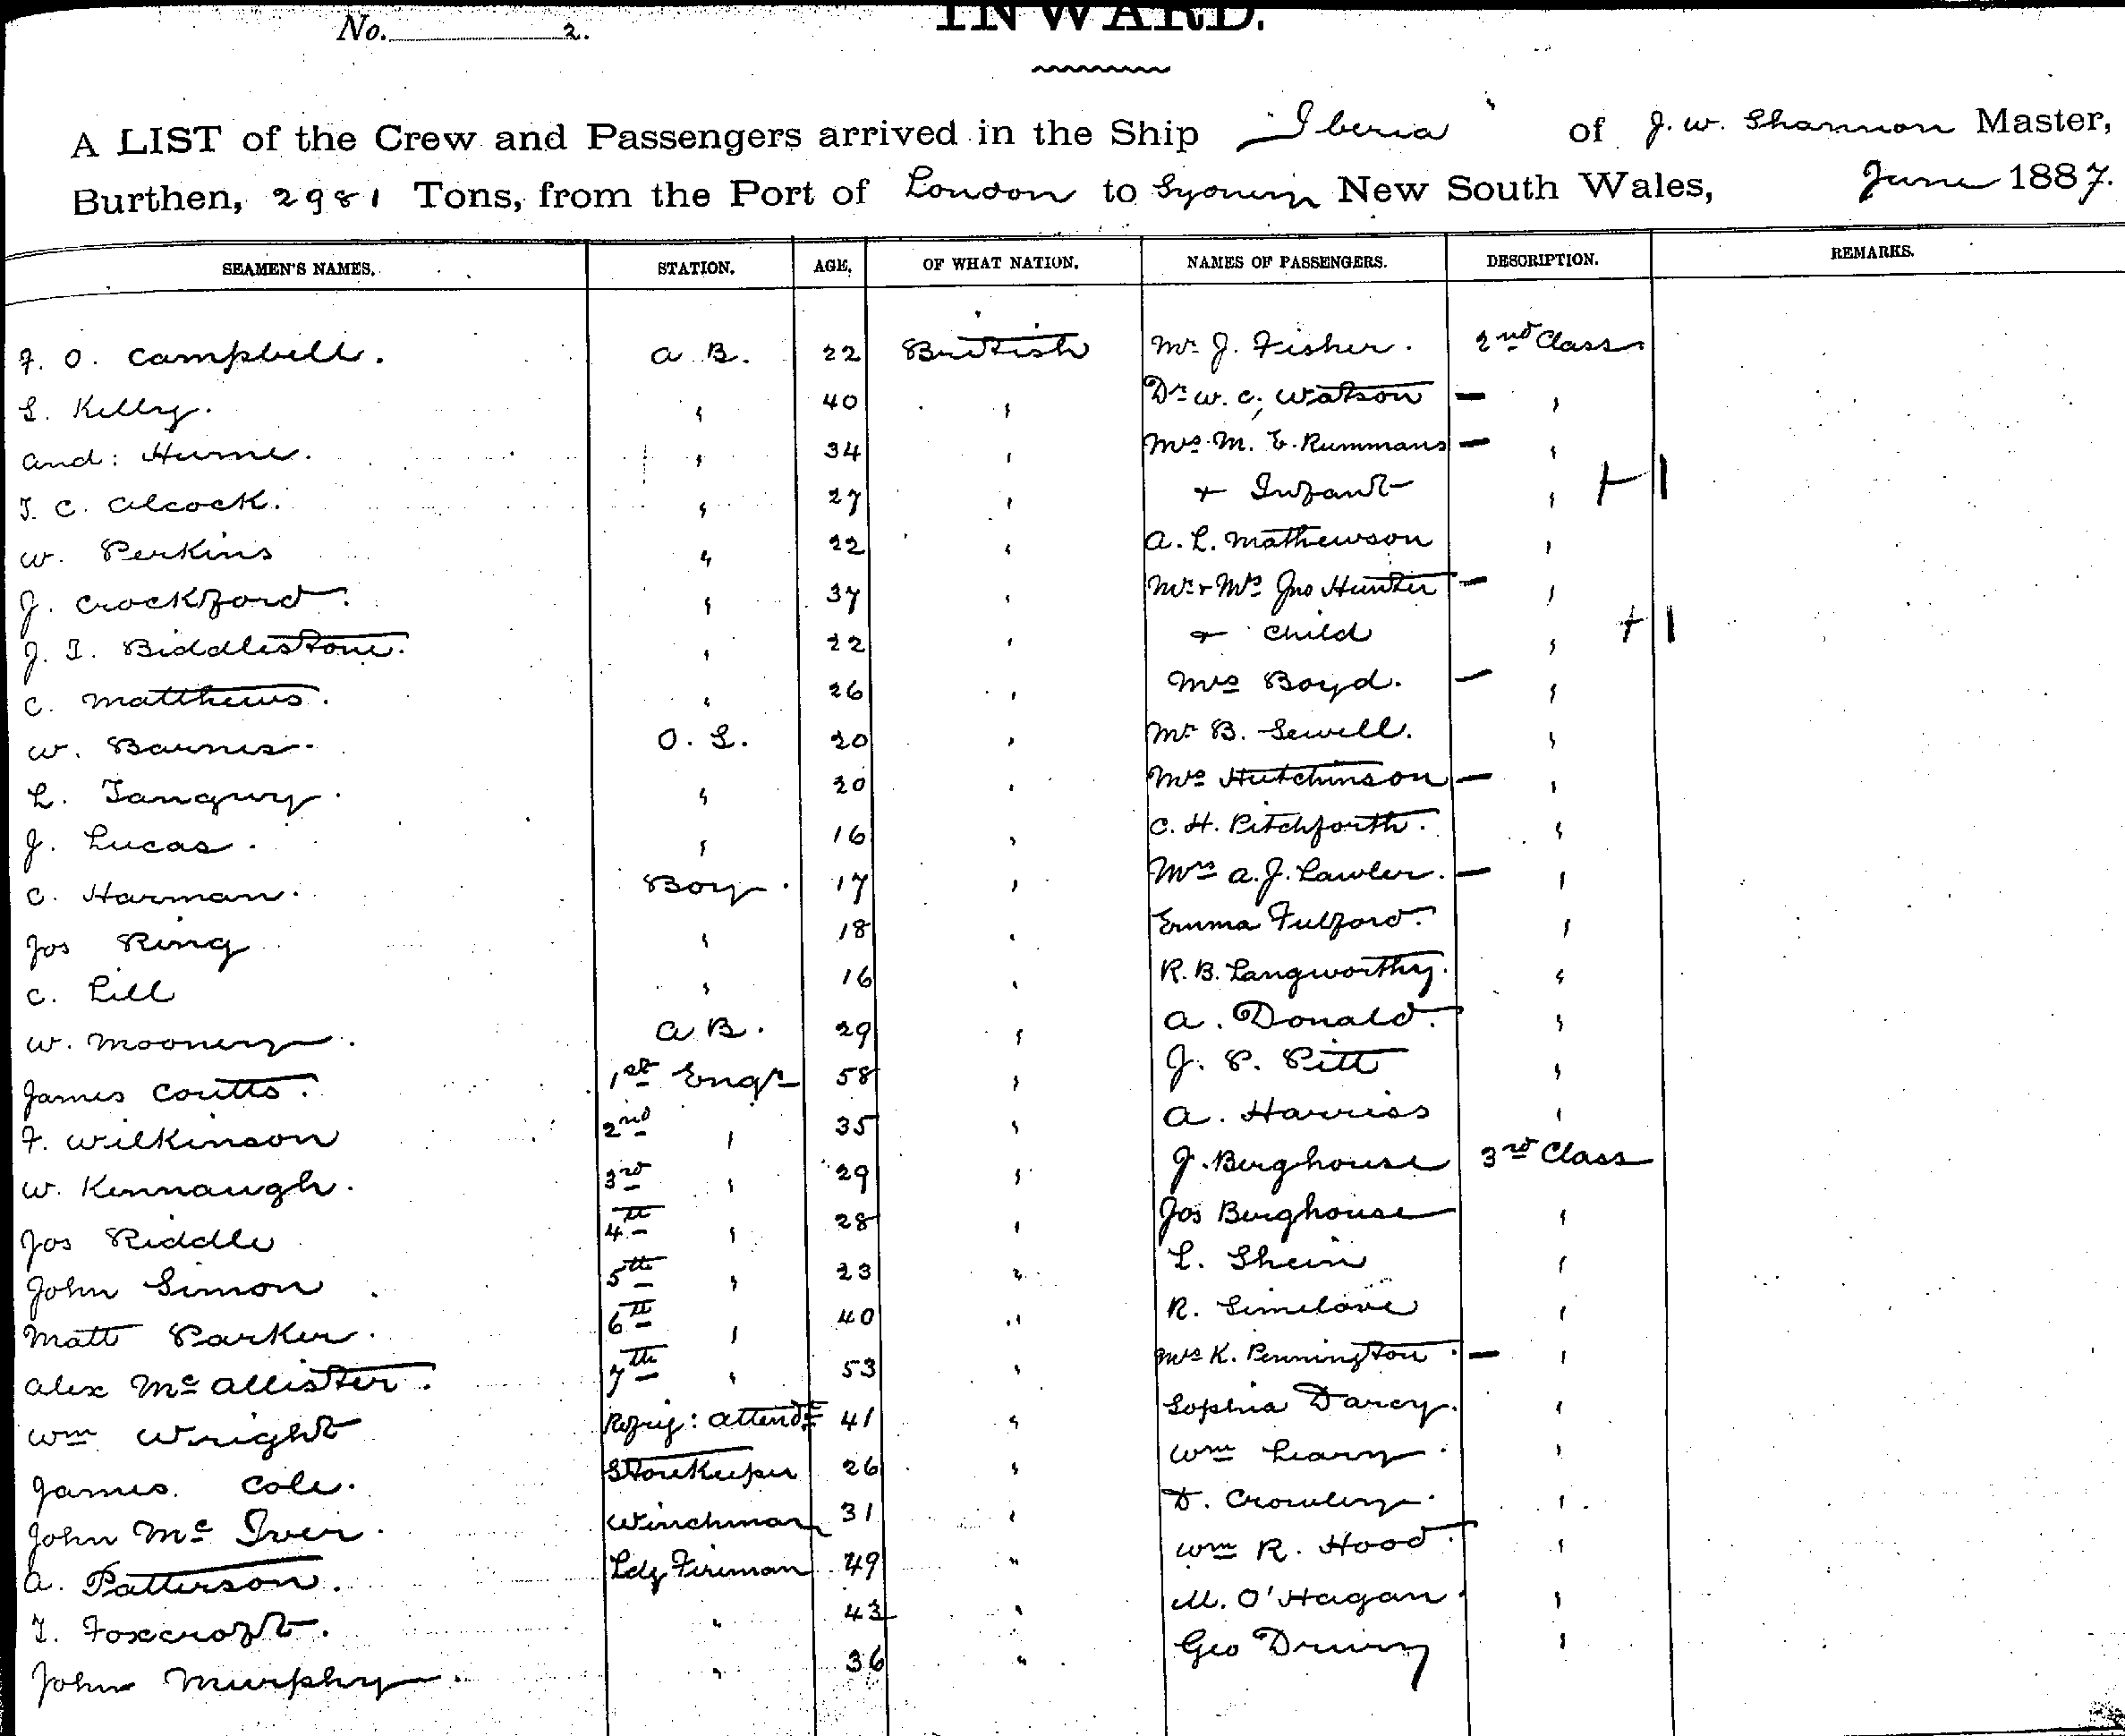 No. 2.
INWARD.
A LIST of the Crew and Passengers arrived in the Ship "Iberia" of J. W. Shannon Master,
Burthen, 2981 Tons, from the Port of London to Sydney New South Wales, June 1887.
SEAMEN'S NAMES. STATION. AGE. OF WHAT NATION. NAMES OF PASSENGERS. DESCRIPTION. REMARKS.
F. O. Campbell. A B. 22 British Mr J. Fisher. 2nd Class
S. Kelly. " 40 " Dr W. C. Watson — "
And: Hume. " 34 " Mrs M. E. Rummans — "
T. C. Alcock. " 27 " + Infant " + 1
W. Perkins " 22 " A. L. Mathewson "
J. Crockford. " 37 " Mr + Mrs Jno Hunter — "
J. T. Biddlestone. " 22 " + Child " + 1
C. Matthews. " 26 " Mrs Boyd. — "
W. Barnes. O. S. 20 " Mr B. Sewell. "
L. Tanguy. " 20 " Mrs Hutchinson — "
J. Lucas. " 16 " C. H. Pitchforth. "
C. Harman. Boy. 17 " Mrs A. J. Lawler. — "
Jos Ring " 18 " Emma Fulford. "
C. Lill " 16 " R. B. Langworthy. "
W. Mooney. A B. 29 " A. Donald. "
James Coutts. 1st Engr 58 " J. P. Pitt "
F. Wilkinson 2nd " 35 " A. Harriss "
W. Kennaugh. 3rd " 29 " J. Berghouse 3rd Class
Jos Riddle 4th " 28 " Jos Berghouse "
John Simon 5th " 23 " L. Shein "
Matt Parker. 6th " 40 " R. Simelove "
Alex McAllister. 7th " 53 " Mrs K. Pennington. — "
Wm Wright Refrig: Attendt 41 " Sophia Darcy. "
James Cole. Storekeeper 26 " Wm Leary. "
John McIver. Winchman 31 " D. Crowley. "
A. Patterson. Ldg Fireman 49 " Wm R. Hood. "
T. Foxcroft. " 43 " M. O'Hagan. "
John Murphy. " 36 " Geo Drury "